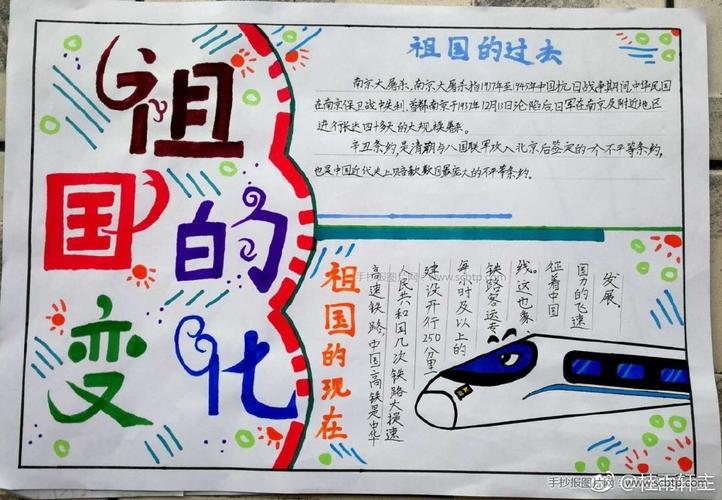 祖
国的
变化
祖国的过去
南京大屠杀,南京大屠杀指1937年至1945年中国抗日战争期间,中华民国
在南京保卫战中失利、首都南京于1937年12月13日沦陷后日军在南京及附近地区
进行长达四十多天的大规模屠杀。
辛丑条约,是清朝与八国联军攻入北京后签定的一个不平等条约,
也是中国近代史上赔款数目最庞大的不平等条约。
祖国的现在
高速铁路 中国高铁是中华
人民共和国几次铁路大提速
建设开行250公里
每小时及以上的
铁路客运专
线。这也象
征着中国
国力的飞速
发展。
手抄报图片网 www.scbtp.com
手抄报图片网 www.scbtp.com
@桂雨轩主